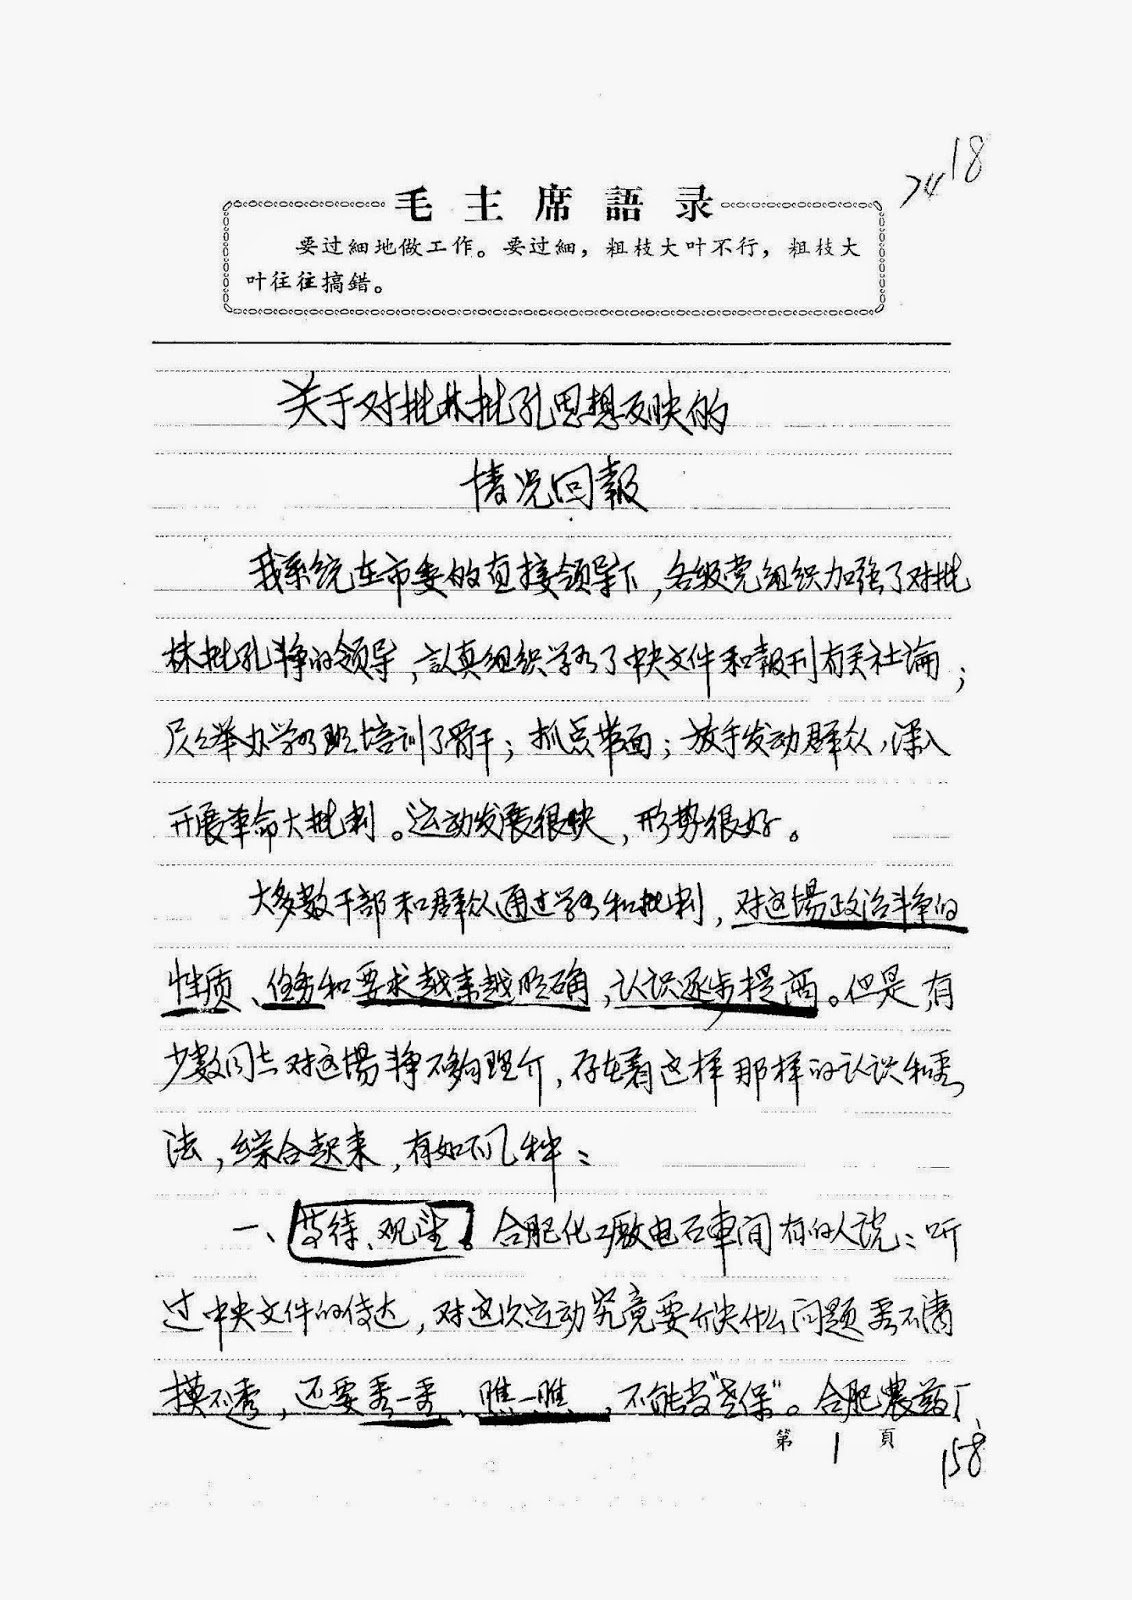 18
74
毛主席語录
要过細地做工作。要过細，粗枝大叶不行，粗枝大
叶往往搞錯。
关于对批林批孔思想反映的
情况回報
我系统在市委的直接领导下，各级党组织加强了对批
林批孔斗争的领导，認真组织学习了中央文件和報刊有关社論；
层层举办学习班培训了骨干；抓点带面；放手发动群众，深入
开展革命大批判。运动发展很快，形势很好。
大多数干部和群众通过学习和批判，对这場政治斗争的
性质、任务和要求越来越明确，认识逐步提高。但是，有
少数同志对这場斗争不够理介，存在着这样那样的认识和看
法，综合起来，有如下几种：
一、等待、观望。合肥化工廠电石車间有的人说：听
过中央文件的传达，对这次运动究竟要介决什么问题看不清
摸不透，还要看一看、瞧一瞧，不能当"老保"。合肥農药厂、
第1頁
158